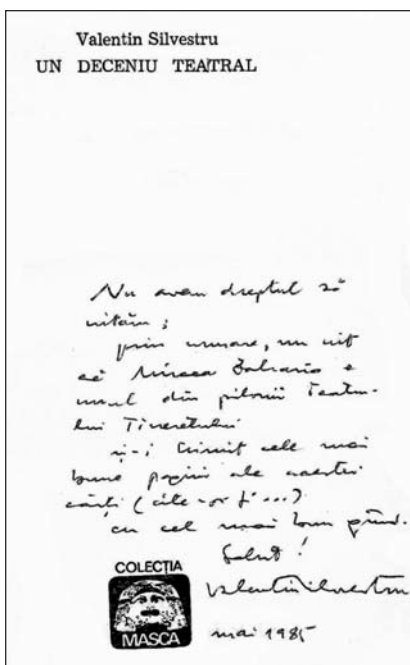 Valentin Silvestru
UN DECENIU TEATRAL
Nu avem dreptul să
uităm;
prin urmare, nu uit
că Mircea e
unul din pilonii Teatru-
lui Tineretului
și-i trimit cele mai
bune pagini ale acestei
cărți (câte-or fi...)
cu cel mai bun gând.
Salut!
Valentin Silvestru
mai 1985
COLECȚIA
MASCA